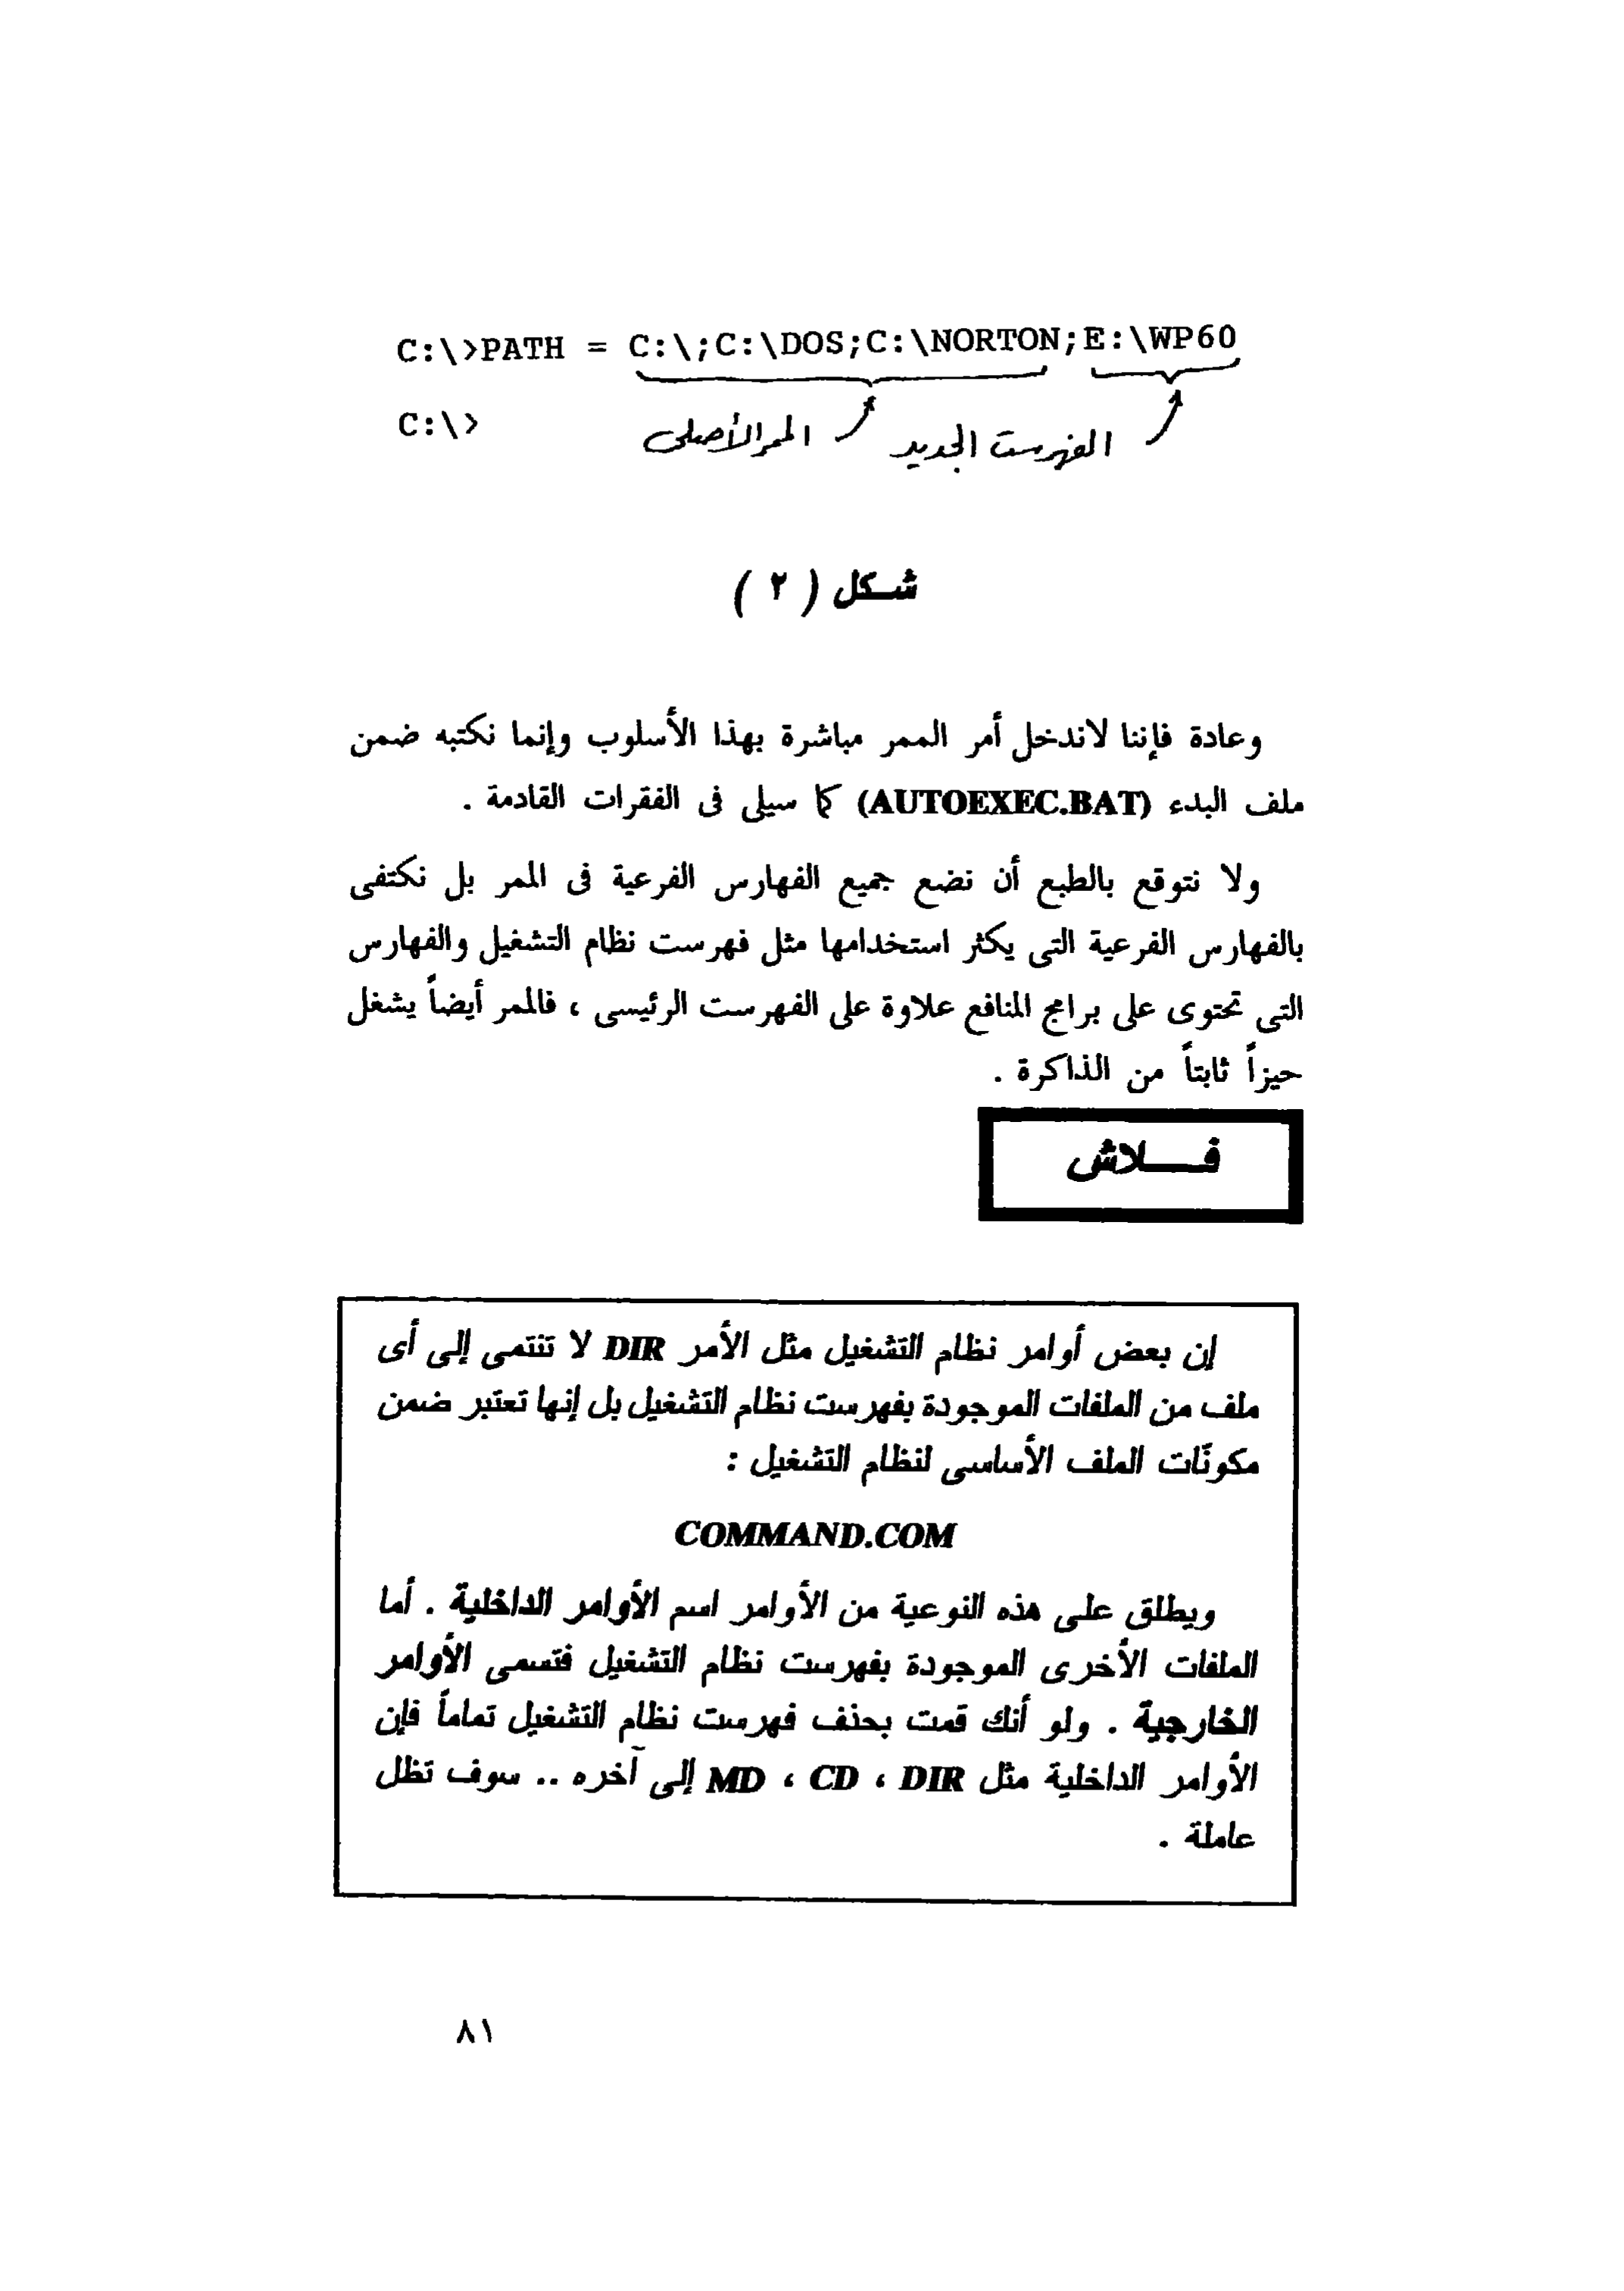 C:\>PATH = C:\;C:\DOS;C:\NORTON;E:\WP60
C:\>
الفهرست الجديد
الممر الأصلى
شـكل ( ٢ )
وعادة فإننا لاندخل أمر الممر مباشرة بهذا الأسلوب وإنما نكتبه ضمن
ملف البدء (AUTOEXEC.BAT) كما سيلى فى الفقرات القادمة .
ولا نتوقع بالطبع أن نضع جميع الفهارس الفرعية فى الممر بل نكتفى
بالفهارس الفرعية التى يكثر استخدامها مثل فهرست نظام التشغيل والفهارس
التى تحتوى على برامج المنافع علاوة على الفهرست الرئيسى ، فالممر أيضاً يشغل
حيزاً ثابتاً من الذاكرة .
فـــلاش
إن بعض أوامر نظام التشغيل مثل الأمر DIR لا تنتمى إلى أى
ملف من الملفات الموجودة بفهرست نظام التشغيل بل إنها تعتبر ضمن
مكونّات الملف الأساسى لنظام التشغيل :
COMMAND.COM
ويطلق على هذه النوعية من الأوامر اسم الأوامر الداخلية . أما
الملفات الأخرى الموجودة بفهرست نظام التشغيل فتسمى الأوامر
الخارجية . ولو أنك قمت بحذف فهرست نظام التشغيل تماماً فإن
الأوامر الداخلية مثل MD ، CD ، DIR إلى آخره .. سوف تظل
عاملة .
٨١